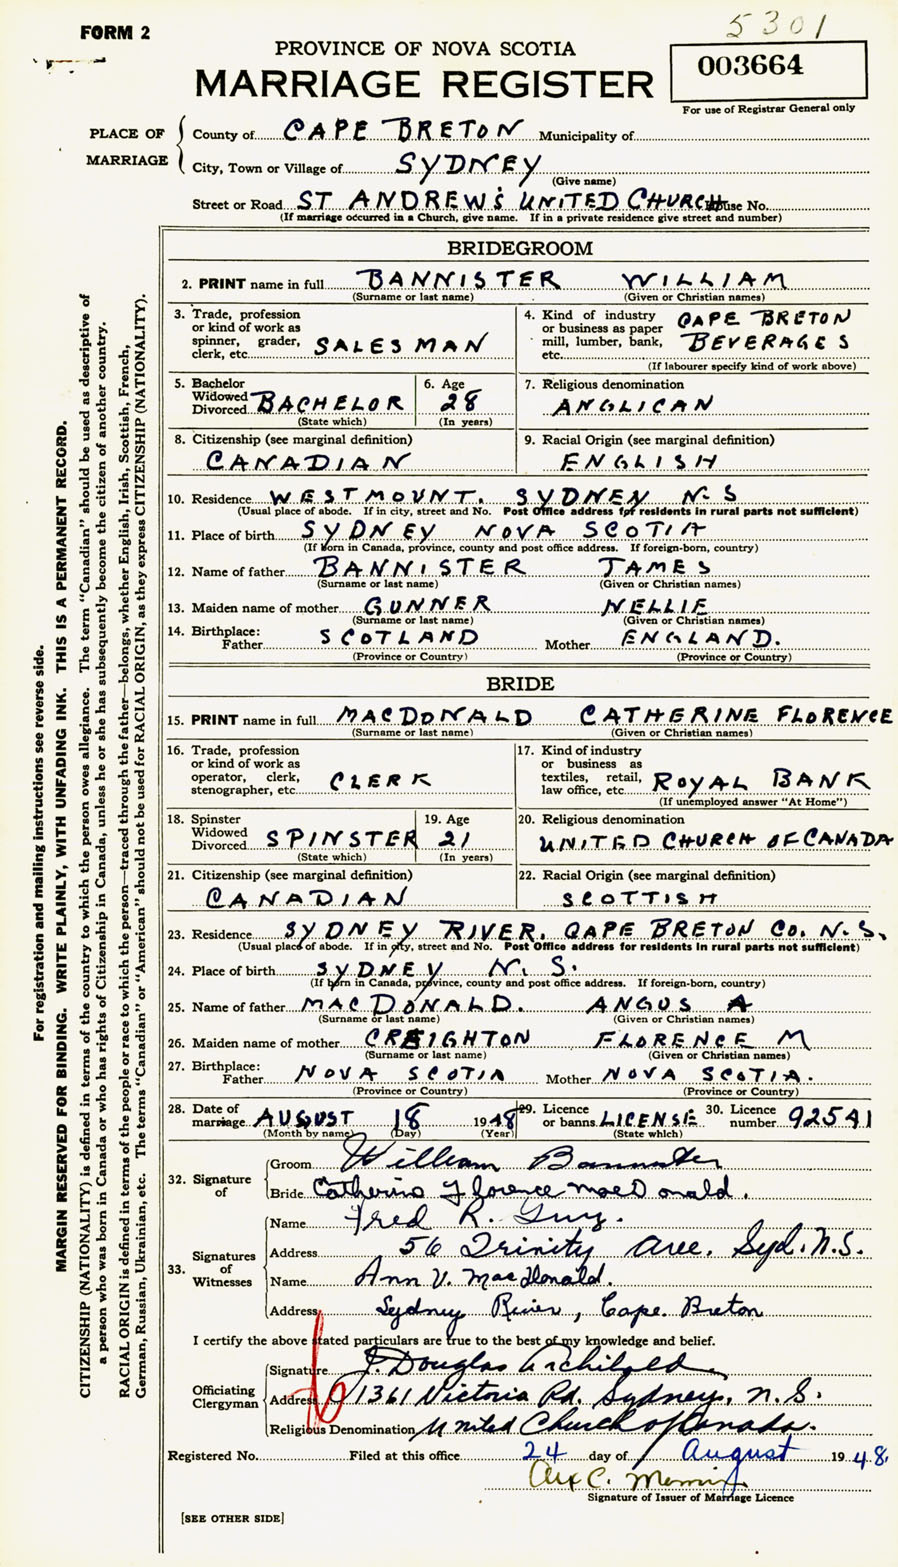 5301
FORM 2
PROVINCE OF NOVA SCOTIA
MARRIAGE REGISTER
003664
For use of Registrar General only
PLACE OF MARRIAGE
County of CAPE BRETON Municipality of
City, Town or Village of SYDNEY
(Give name)
Street or Road ST ANDREW'S UNITED CHURCH House No.
(If marriage occurred in a Church, give name. If in a private residence give street and number)
BRIDEGROOM
2. PRINT name in full BANNISTER WILLIAM
(Surname or last name) (Given or Christian names)
3. Trade, profession or kind of work as spinner, grader, clerk, etc. SALESMAN
4. Kind of industry or business as paper mill, lumber, bank, etc. CAPE BRETON BEVERAGES
(If labourer specify kind of work above)
5. Bachelor Widowed Divorced BACHELOR
(State which)
6. Age 28
(In years)
7. Religious denomination
ANGLICAN
8. Citizenship (see marginal definition)
CANADIAN
9. Racial Origin (see marginal definition)
ENGLISH
10. Residence WESTMOUNT. SYDNEY N.S
(Usual place of abode. If in city, street and No. Post Office address for residents in rural parts not sufficient)
11. Place of birth SYDNEY NOVA SCOTIA
(If born in Canada, province, county and post office address. If foreign-born, country)
12. Name of father BANNISTER JAMES
(Surname or last name) (Given or Christian names)
13. Maiden name of mother GUNNER NELLIE
(Surname or last name) (Given or Christian names)
14. Birthplace: Father SCOTLAND Mother ENGLAND.
(Province or Country) (Province or Country)
BRIDE
15. PRINT name in full MACDONALD CATHERINE FLORENCE
(Surname or last name) (Given or Christian names)
16. Trade, profession or kind of work as operator, clerk, stenographer, etc. CLERK
17. Kind of industry or business as textiles, retail, law office, etc. ROYAL BANK
(If unemployed answer "At Home")
18. Spinster Widowed Divorced SPINSTER
(State which)
19. Age 21
(In years)
20. Religious denomination
UNITED CHURCH OF CANADA
21. Citizenship (see marginal definition)
CANADIAN
22. Racial Origin (see marginal definition)
SCOTTISH
23. Residence SYDNEY RIVER, CAPE BRETON CO. N.S.
(Usual place of abode. If in city, street and No. Post Office address for residents in rural parts not sufficient)
24. Place of birth SYDNEY N.S.
(If born in Canada, province, county and post office address. If foreign-born, country)
25. Name of father MACDONALD. ANGUS A
(Surname or last name) (Given or Christian names)
26. Maiden name of mother CREIGHTON FLORENCE M
(Surname or last name) (Given or Christian names)
27. Birthplace: Father NOVA SCOTIA Mother NOVA SCOTIA.
(Province or Country) (Province or Country)
28. Date of marriage AUGUST 18 1948
(Month by name) (Day) (Year)
29. Licence or banns LICENSE
(State which)
30. Licence number 92541
32. Signature of
Groom William Bannister
Bride Catherine Florence MacDonald.
33. Signatures of Witnesses
Name Fred R. Guy.
Address 56 Trinity Ave. Syd. N.S.
Name Ann V. MacDonald.
Address Sydney River, Cape Breton
I certify the above stated particulars are true to the best of my knowledge and belief.
Officiating Clergyman
Signature J. Douglas Archibald
Address 1361 Victoria Rd. Sydney, N.S.
Religious Denomination United Church of Canada.
Registered No. Filed at this office 24 day of August 1948.
Alex C.
Signature of Issuer of Marriage Licence
[SEE OTHER SIDE]
For registration and mailing instructions see reverse side.
MARGIN RESERVED FOR BINDING. WRITE PLAINLY, WITH UNFADING INK. THIS IS A PERMANENT RECORD.
CITIZENSHIP (NATIONALITY) is defined in terms of the country to which the person owes allegiance. The term "Canadian" should be used as descriptive of
a person who was born in Canada or who has rights of Citizenship in Canada, unless he or she has subsequently become the citizen of another country.
RACIAL ORIGIN is defined in terms of the people or race to which the person—traced through the father—belongs, whether English, Irish, Scottish, French,
German, Russian, Ukrainian, etc. The terms "Canadian" or "American" should not be used for RACIAL ORIGIN, as they express CITIZENSHIP (NATIONALITY).